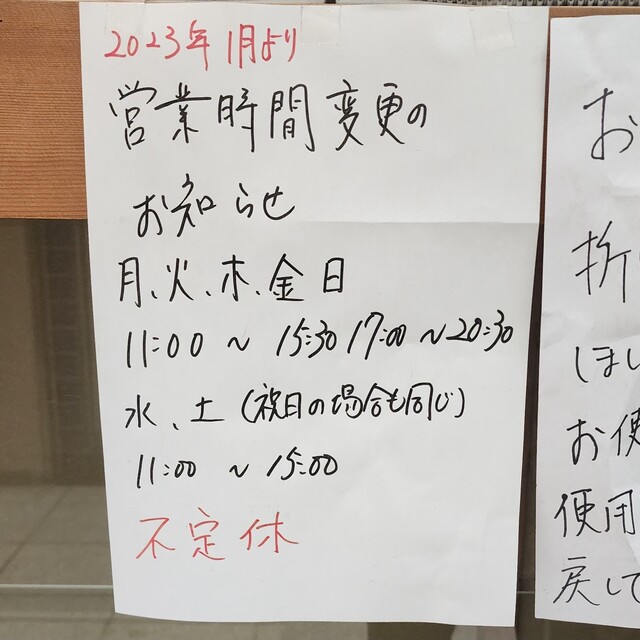 2023年1月より
営業時間変更の
お知らせ
月、火、木、金日
11:00 ~ 15:30 17:00 ~ 20:30
水、土(祝日の場合も同じ)
11:00 ~ 15:00
不定休
お
折
ほし
お使
使用
戻して